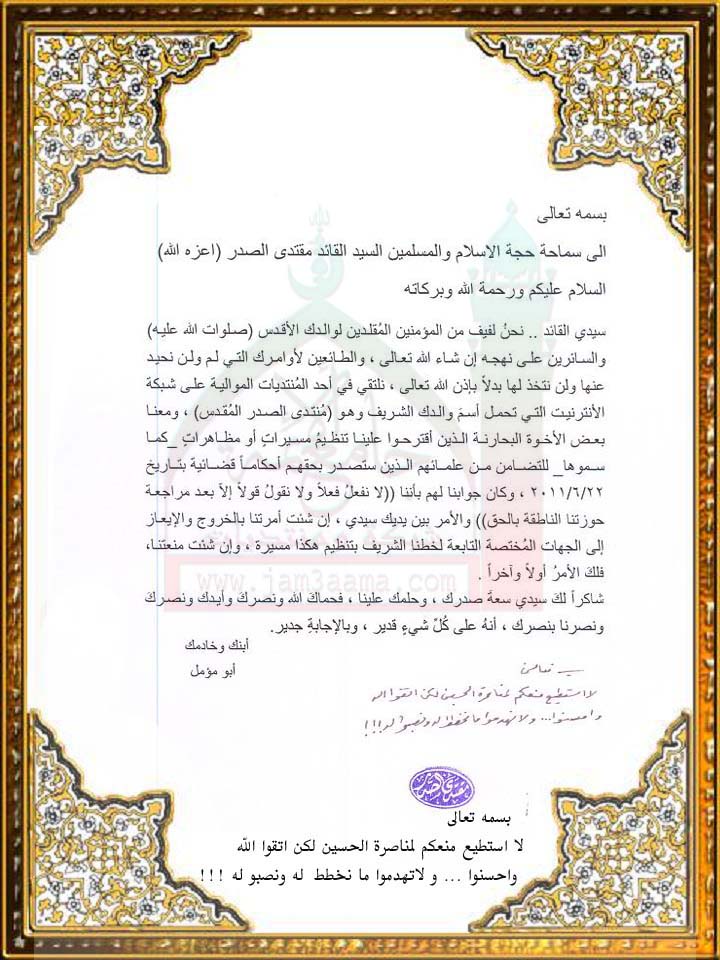 بسمه تعالى
الى سماحة حجة الاسلام والمسلمين السيد القائد مقتدى الصدر (اعزه الله)
السلام عليكم ورحمة الله وبركاته
سيدي القائد .. نحنُ لفيف من المؤمنين المُقلدين لوالدك الأقدس (صلوات الله عليه)
والسائرين على نهجه إن شاء الله تعالى ، والطائعين لأوامرك التي لم ولن نحيد
عنها ولن نتخذ لها بدلاً بإذن الله تعالى ، نلتقي في أحد المُنتديات الموالية على شبكة
الأنترنيت التي تحمل أسمَ والدك الشريف وهو (مُنتدى الصدر المُقدس) ، ومعنا
بعض الأخوة البحارنة الذين أقترحوا علينا تنظيمُ مسيراتٍ أو مظاهراتٍ _كما
سموها_ للتضامن من علمائهم الذين ستصدر بحقهم أحكاماً قضائية بتاريخ
٢٠١١/٦/٢٢ ، وكان جوابنا لهم بأننا ((لا نفعلُ فعلاً ولا نقولُ قولاً إلاّ بعد مراجعة
حوزتنا الناطقة بالحق)) والأمر بين يديك سيدي ، إن شئت أمرتنا بالخروج والإيعاز
إلى الجهات المُختصة التابعة لخطنا الشريف بتنظيم هكذا مسيرة ، وإن شئت منعتنا،
فلكَ الأمرُ أولاً وآخراً .
شاكراً لكَ سيدي سعةَ صدرك ، وحلمك علينا ، فحماكَ الله ونصركَ وأيدك ونصركَ
ونصرنا بنصرك ، أنهُ على كُلِّ شيءٍ قدير ، وبالإجابةِ جدير.
أبنك وخادمك
أبو مؤمل
بسمه تعالى
لا استطيع منعكم لمناصرة الحسين لكن اتقوا الله
واحسنوا ... ولا تهدموا ما نخطط له ونصبو له !!!
مقتدى الصدر
بسمه تعالى
لا استطيع منعكم لمناصرة الحسين لكن اتقوا الله
واحسنوا ... و لاتهدموا ما نخطط له ونصبو له !!!
www.jam3aama.com